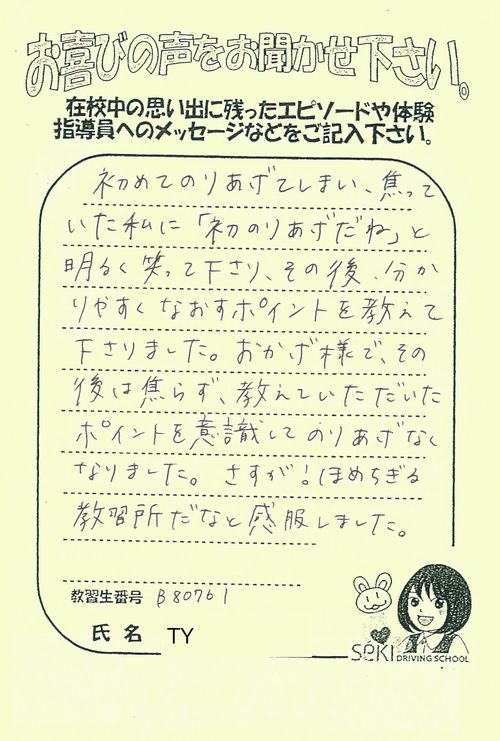 お喜びの声をお聞かせ下さい。
在校中の思い出に残ったエピソードや体験
指導員へのメッセージなどをご記入下さい。
初めてのりあげてしまい、焦って
いた私に「初のりあげだね」と
明るく笑って下さり、その後、分か
りやすくなおすポイントを教えて
下さりました。おかげ様で、その
後は焦らず、教えていただいた
ポイントを意識してのりあげなく
なりました。さすが！ほめちぎる
教習所だなと感服しました。
教習生番号 β80761
氏名 TY
SEKI DRIVING SCHOOL